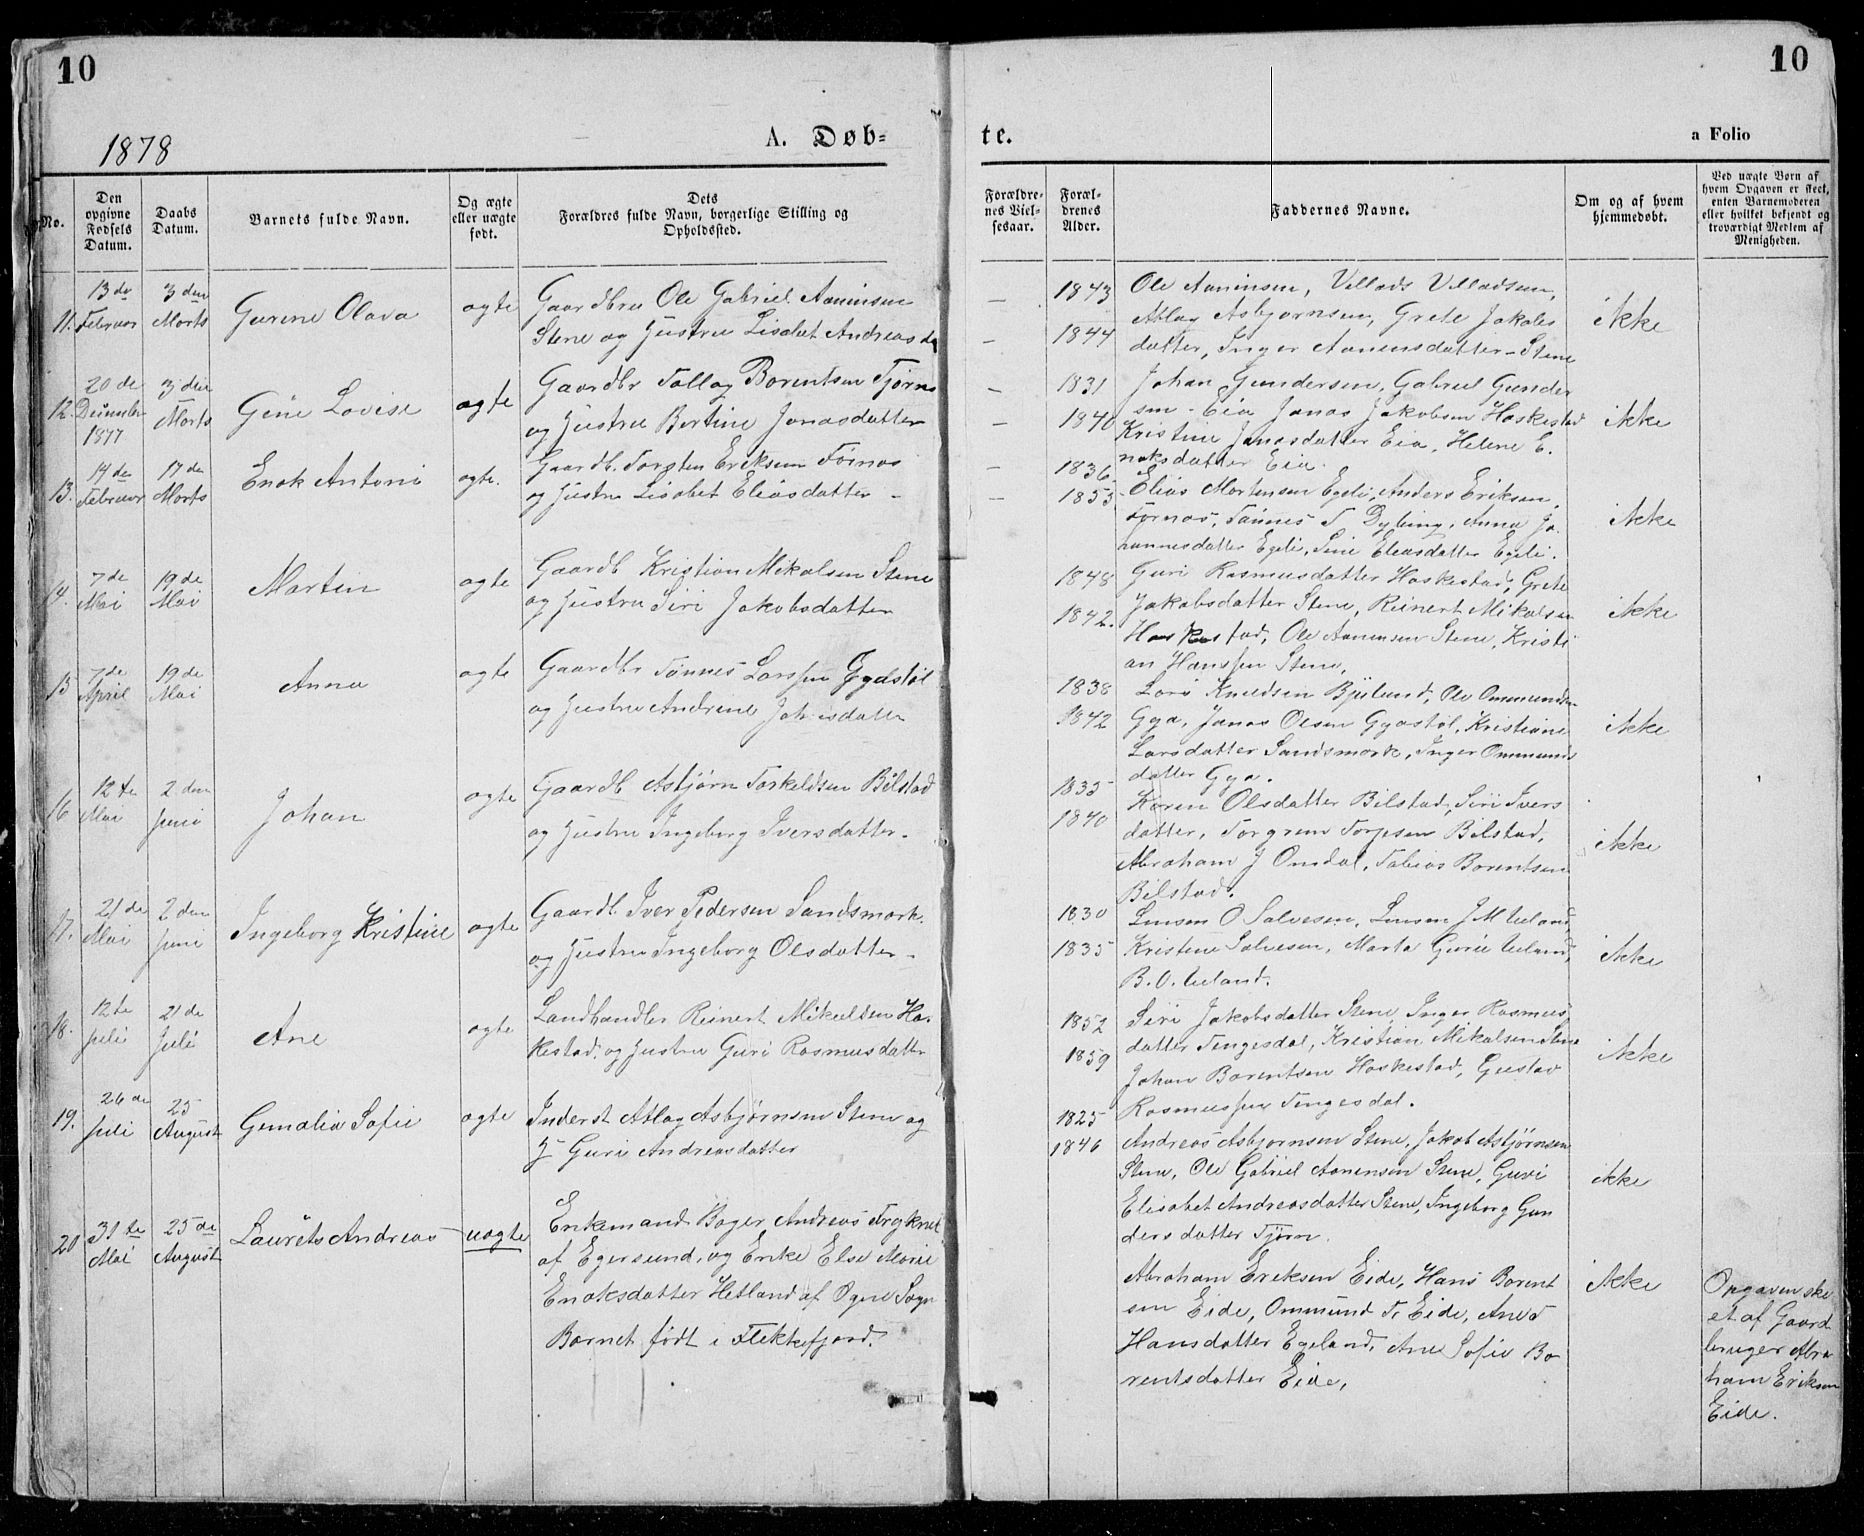 10
10
1878
A. Døb-
te.
a Folio
No.
Den opgivne Fødsels Datum.
Daabs Datum.
Barnets fulde Navn.
Og ægte eller uægte født.
Dets Forældres fulde Navn, borgerlige Stilling og Opholdssted.
Forældrenes Vielsesaar.
Forældrenes Alder.
Faddernes Navne.
Om og af hvem hjemmedøbt.
Ved uægte Born af hvem Opgaven er skeet, enten Barnemoderen eller hvilket bekjendt og troværdigt Medlem af Menigheden.
11. 13de Februar
3den Marts
Gurine Olava
ægte
Gaardbru Ole Gabriel Aanensen
Stene og Hustru Lisabet Andreasda
1843
1844
Ole Aanensen, Villads Villadsen,
Atlag Asbjørnsen, Grete Jakobs
datter, Inger Aanensdatter - Stene
ikke
12. 20de December 1877
3den Marts
Gine Lovise
ægte
Gaardbr Tollag Borentsen Tjørn
og Hustru Bertine Jonasdatter
1831
1840
Johan Gundersen, Gabriel Gunder
sen - Eia Jonas Jakobsen Haskestad
Kristine Jonasdatter Eia, Helene E.
noksdatter Eia.
ikke
13. 14de Februar
17de Marts
Enok Antoni
ægte.
Gaardb. Torsten Eriksen Tørnas
og Hustru Lisabet Eliasdatter -
1836
1855
Elias Mortensen Egeli, Anders Eriksen,
Tørnas, Tønnes T Dybing, Anna Jo
hannesdatter Egeli, Sine Eliasdatter Egeli.
ikke
14. 7de Mai
19de Mai
Martin
ægte
Gaardb Kristian Mikalsen Stene
og Hustru Siri Jakobsdatter
1848
1842.
Guri Rasmusdatter Haskestad, Grete
Jakobsdatter Stene, Reinert Mikalsen
Haskestad, Ole Aanensen Stene, Kristi
an Hanssen Stene,
ikke
15 7de April
19de Mai
Anna
ægte
Gaardbr Tønnes Larssen Gydstøl
og Hustru Andrine
1838
1842
Lars Knudsen Bjuland, Ole Ommundsen
Gya, Jonas Olsen Gyastøl, Kristiane
Larsdatter Sandsmark, Inger Ommunds
datter Gya.
ikke
16 12te Mai
2den Juni
Johan
ægte
Gaardb Asbjørn Torkeldsen Bilstad
og Hustru Ingeborg Iversdatter.
1835
1840
Karen Olsdatter Bilstad, Siri Ivers
datter, Torgrim Torjesen Bilstad,
Abraham J Omdal, Tobias Borentsen
Bilstad.
ikke
17. 21de Mai
2den Juni
Ingeborg Kristine
ægte
Gaardb. Iver Pedersen Sandsmark.
og Hustru Ingeborg Olsdatter -
1830
1835
Lensm O Salvesen, Lensm J M Ueland,
Kristine Salvesen, Marta Gurie Ueland,
B. O. Ueland.
ikke
18. 12te Juli
21de Juli
Ane
ægte
Landhandler Reinert Mikalsen Ha.
kestad. og Hustru Guri Rasmusdatter
1852
1859
Siri Jakobsdatter Stene Inger Rasmus
datter Tengesdal, Kristian Mikalsen Stene
Johan Borentsen Haskestad, Gustav
Rasmussen Tengesdal.
ikke
19. 26de Juli
25 August
Gemalia Sofie
ægte
Inderst Atlag Asbjørnsen Stene og
H Guri Andreasdatter
1825
1846
Andreas Asbjørnsen Stene, Jakob Asbjørnsen
Stene, Ole Gabriel Aanensen Stene, Guri
Elisabet Andreasdatter Stene, Ingeborg Gun
dersdatter Tjørn.
ikke
20 31te Mai
25de August
Laurits Andreas
uægte
Enkemand Bager Andreas
af Egersund, og Enke Else Marie
Enoksdatter Hetland af Ogne Sogn
Barnet født i Flekkefjord.
Abraham Eriksen Eide, Hans Borent
sen Eide, Ommund T. Eide, Ane
Hansdatter Egeland, Ane Sofie Bo
rentsdatter Eide,
ikke
Opgaven ske
et af Gaard
bruger Abra
ham Eriksen
Eide.